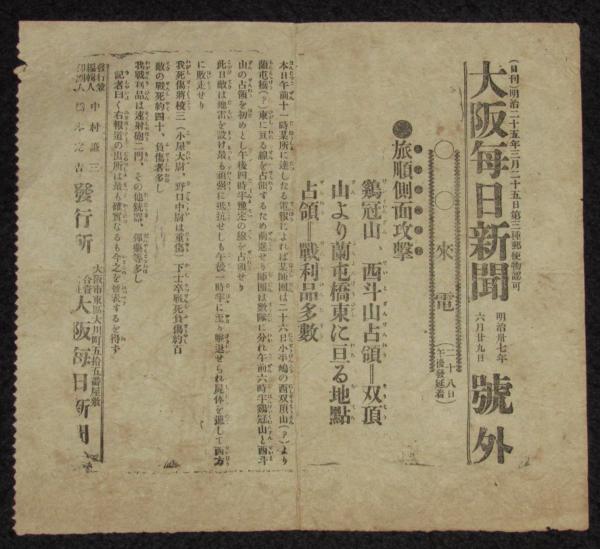 (日刊)明治二十五年三月二十五日第三種郵便物認可
大阪每日新聞 明治卅七年六月廿九日 號外
〇〇來電(二十八日午後發延着)
旅順側面攻擊
鷄冠山、西斗山占領=双頂
山より蘭屯橋東に亘る地點
占領=戰利品多數
本日午前十一時某所に達したる電報によれば某師團は二十六日小平嶋の西双頂山(?)より
蘭屯橋(?)東に亘る線を占領するため前進せり師團は數隊に分れ午前六時半鷄冠山と西斗
山の占領を初めとし午後四時半豫定の線を占領せり
此日敵は地雷を設け最も頑强に抵抗せしも午後一時半に至り擊退せられ屍体を遺して西方
に敗走せり
我死傷將校三(小屋大尉、野口中尉は重傷)下士卒戰死負傷約百
敵の戰死約四十、負傷者多し
我戰利品は速射砲二門、その他銃器、彈藥等多し
記者曰く右報道の出所は最も確實なるも今之を發表するを得ず
發行兼編輯人 中村謙三
發行所 大阪市東區大川町五拾五番屋敷 大阪每日新聞